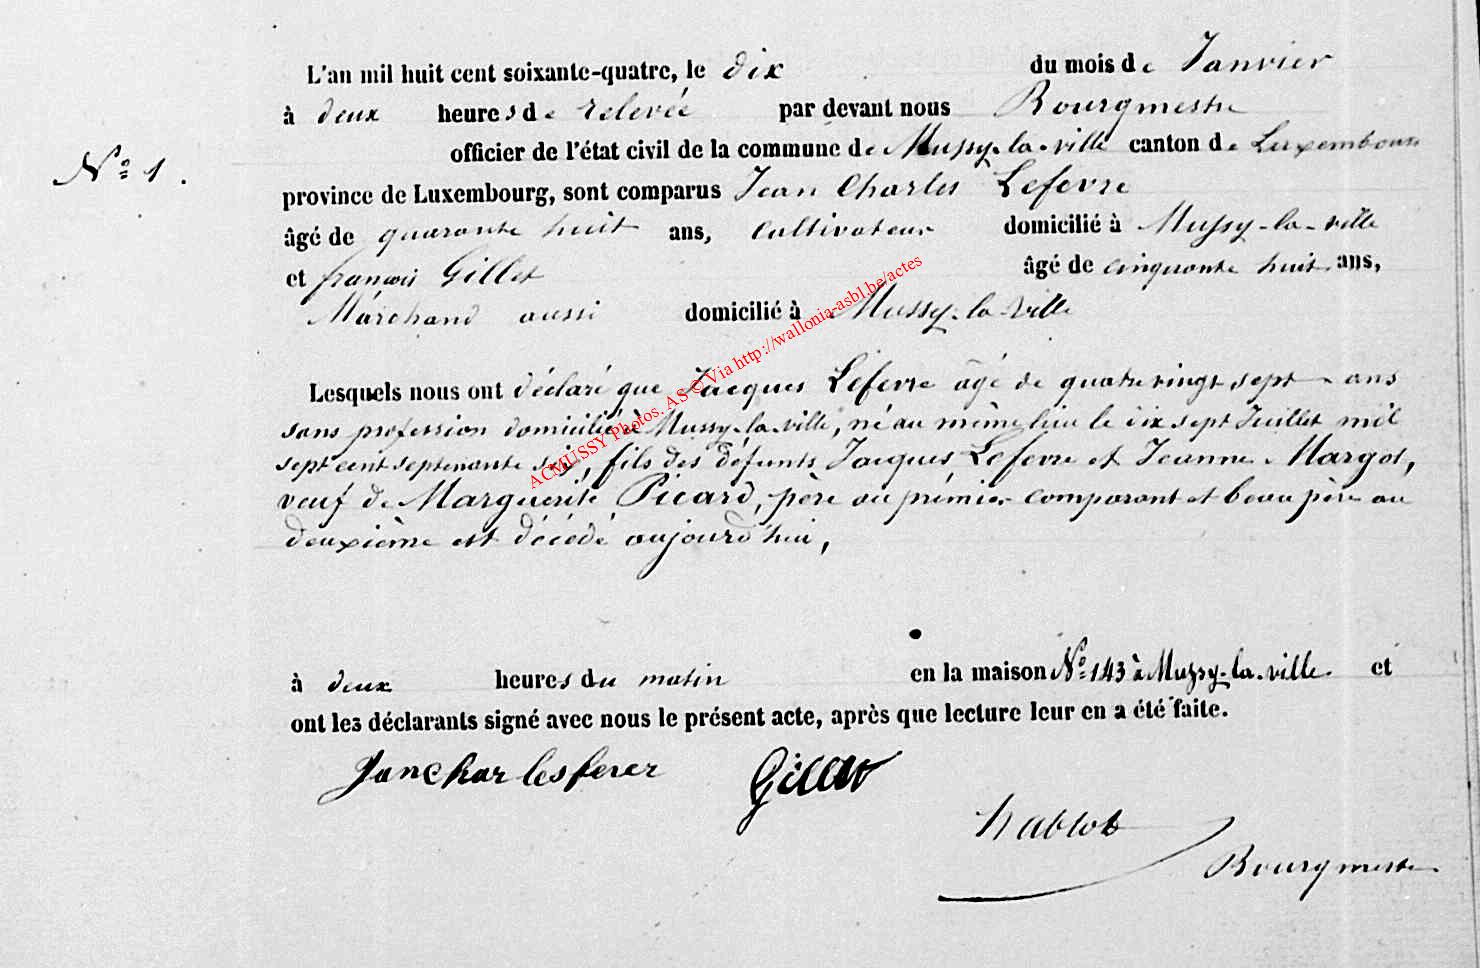 L'an mil huit cent soixante-quatre, le dix du mois de Janvier
à deux heures de relevée par devant nous Bourgmestre
officier de l'état civil de la commune de Mussy-la-ville canton de Luxembourg
N° 1.
province de Luxembourg, sont comparus Jean Charles Lefevre
âgé de quarante huit ans, Cultivateur domicilié à Mussy-la-ville
et françois Gillet âgé de cinquante huit ans,
Marchand aussi domicilié à Mussy-la-Ville
Lesquels nous ont déclaré que Jacques Lefevre âgé de quatre vingt sept ans
sans profession domicilié à Mussy-la-ville, né au même lieu le dix sept Juillet mil
sept cent septante six, fils des défunts Jacques Lefevre et Jeanne Margot,
veuf de Marguerite Picard, père au prémier comparant et beau père au
deuxième est décédé aujourd'hui,
à deux heures du matin en la maison N° 143 à Mussy-la-ville et
ont les déclarants signé avec nous le présent acte, après que lecture leur en a été faite.
Gillet
Bourgmestre
ACMUSSY Photos. AS © Via http://wallonia-asbl.be/actes